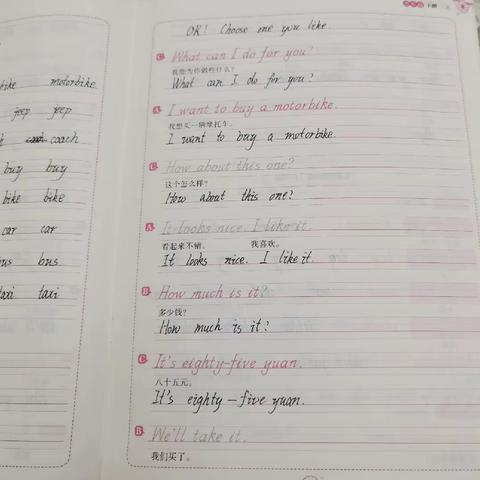 bike motorbike
jeep jeep
coach
buy buy
bike bike
car car
bus bus
taxi taxi
下册
OK! Choose one you like.
C. What can I do for you?
我能为你做些什么?
What can I do for you?
A. I want to buy a motorbike.
我想买一辆摩托车。
I want to buy a motorbike.
C. How about this one?
这个怎么样?
How about this one?
A. It looks nice. I like it.
看起来不错。 我喜欢。
It looks nice. I like it.
B. How much is it?
多少钱?
How much is it?
C. It's eighty-five yuan.
八十五元。
It's eighty-five yuan.
B. We'll take it.
我们买了。